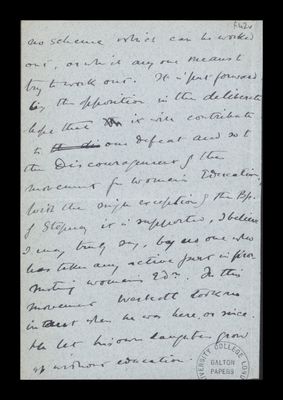 f42v
no scheme which can be worked
out, or which any one means to
try to work out. It is put forward
by the opposition in the deliberate
hope that it will contribute
to our defeat and so to
the Discouragement of the
movement for Womens Education,
With the single exception of the Bp.
of Stepney it is supported, I believe
I may truly say, by no one who
has taken any active part in pro
moting womens Edn. In this
movement Westcott took no
interest when he was here, or since.
He let his own daughters grow
up without education.
UNIVERSITY COLLEGE LONDON
GALTON
PAPERS